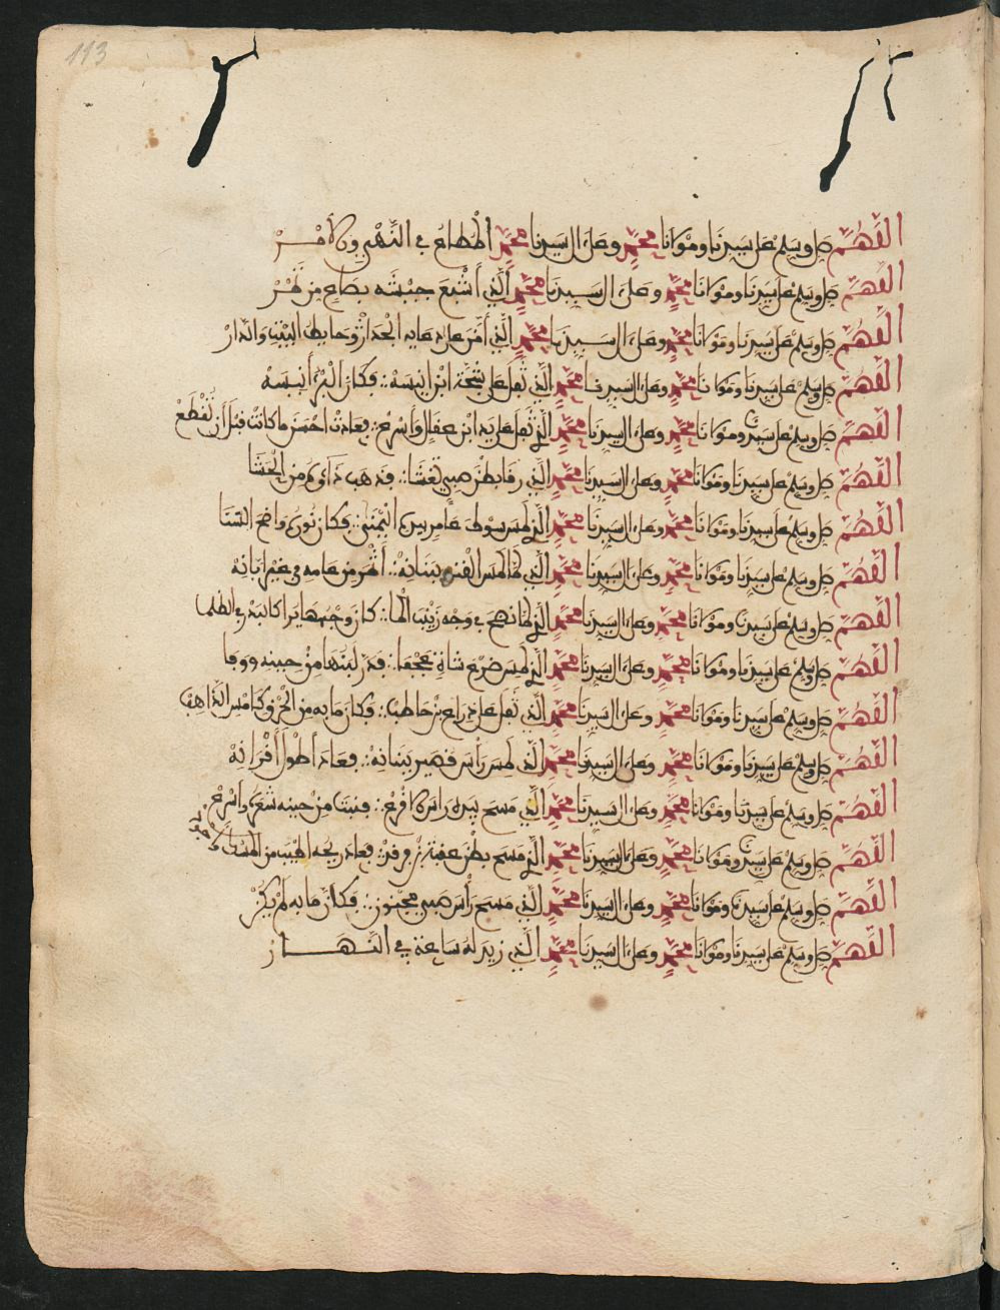 113
اللَّهُمَّ صل وسلم على سيدنا ومولانا محمد وعلى ال سيدنا محمد المطاع في النهي والامر
اللَّهُمَّ صل وسلم على سيدنا ومولانا محمد وعلى ال سيدنا محمد الذي أشبع جيشه بصاع من تمر
اللَّهُمَّ صل وسلم على سيدنا ومولانا محمد وعلى ال سيدنا محمد الذي أمن على دعايه الجدار وحايط البيت والدار
اللَّهُمَّ صل وسلم على سيدنا ومولانا محمد وعلى ال سيدنا محمد الذي تفل على شجة ابن انيسه ∴ فكان البرء أنيسه
اللَّهُمَّ صل وسلم على سيدنا ومولانا محمد وعلى ال سيدنا محمد الذي تفل على يد ابن عفرا وأسرع ∴ فعادت احسن ما كانت قبل أن تقطع
اللَّهُمَّ صل وسلم على سيدنا ومولانا محمد وعلى ال سيدنا محمد الذي رقا بطن صبي تغشا ∴ فذهب دآؤه من الحشا
اللَّهُمَّ صل وسلم على سيدنا ومولانا محمد وعلى ال سيدنا محمد الذي لمس سوط عامر بيده اليمنى ∴ فكان نوره واضح السنا
اللَّهُمَّ صل وسلم على سيدنا ومولانا محمد وعلى ال سيدنا محمد الذي لما لمس الغرس ببنانه ∴ أثمر من عامه في غير ابانه
اللَّهُمَّ صل وسلم على سيدنا ومولانا محمد وعلى ال سيدنا محمد الذي لما نضح في وجه زينب الما ∴ كان وجهها يرا كالبدر في الظلما
اللَّهُمَّ صل وسلم على سيدنا ومولانا محمد وعلى ال سيدنا محمد الذي لمس ضرع شاة عجفا ∴ فدر لبنها من حينه ووفا
اللَّهُمَّ صل وسلم على سيدنا ومولانا محمد وعلى ال سيدنا محمد الذي تفل على ذراع بن حاطب ∴ فكان ما به من الحرق كامس الذاهب
اللَّهُمَّ صل وسلم على سيدنا ومولانا محمد وعلى ال سيدنا محمد الذي لمس رأس قصير ببنانه ∴ فعاد أطول أقرانه
اللَّهُمَّ صل وسلم على سيدنا ومولانا محمد وعلى ال سيدنا محمد الذي مسح بيده راس الاقرع ∴ فنبت من حينه شعره وأسرع
اللَّهُمَّ صل وسلم على سيدنا ومولانا محمد وعلى ال سيدنا محمد الذي مسح بطن عتبة بن فرقد فعاد ريحه اطيب من المسك
اللَّهُمَّ صل وسلم على سيدنا ومولانا محمد وعلى ال سيدنا محمد الذي مسح رأس صبي مجنون ∴ فكان ما به لم يكن
اللَّهُمَّ صل وسلم على سيدنا ومولانا محمد وعلى ال سيدنا محمد الذي زيد له ساعة في النهار